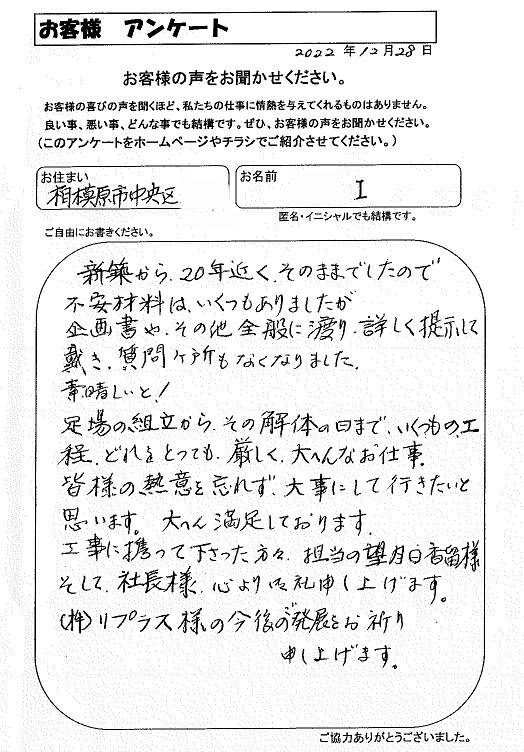 お客様 アンケート
2022 年12月28日
お客様の声をお聞かせください。
お客様の喜びの声を聞くほど、私たちの仕事に情熱を与えてくれるものはありません。
良い事、悪い事、どんな事でも結構です。ぜひ、お客様の声をお聞かせください。
(このアンケートをホームページやチラシでご紹介させてください。)
お住まい
相模原市中央区
お名前
I
匿名・イニシャルでも結構です。
ご自由にお書きください。
新築から、20年近く、そのままでしたので
不安材料は、いくつもありましたが
企画書や、その他全般に渡り、詳しく提示して
戴き、質問ケ所もなくなりました。
素晴しいと!
足場の組立から、その解体の日まで、いくつもの、工
程、どれをとっても、厳しく、大へんなお仕事。
皆様の熱意を忘れず、大事にして行きたいと
思います。大へん満足しております。
工事に携って下さった方々、担当の望月 様
そして、社長様、心より御礼申し上げます。
(株)リプラス様の今後の発展をお祈り
申し上げます。
ご協力ありがとうございました。